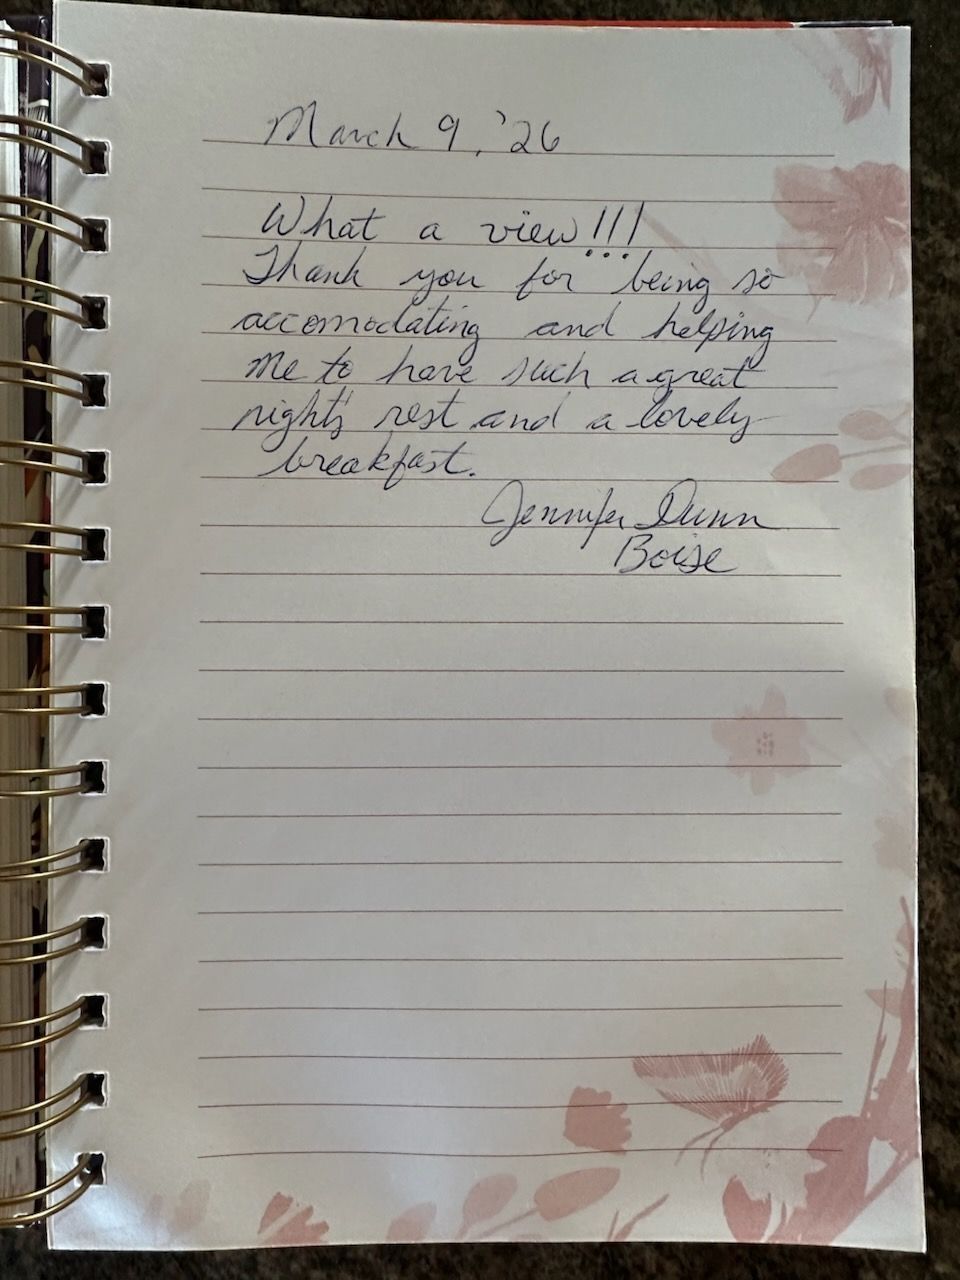 March 9, '26
What a view!!!
Thank you for being so
accomodating and helping
me to have such a great
night's rest and a lovely
breakfast.
Jennifer Dunn
Boise